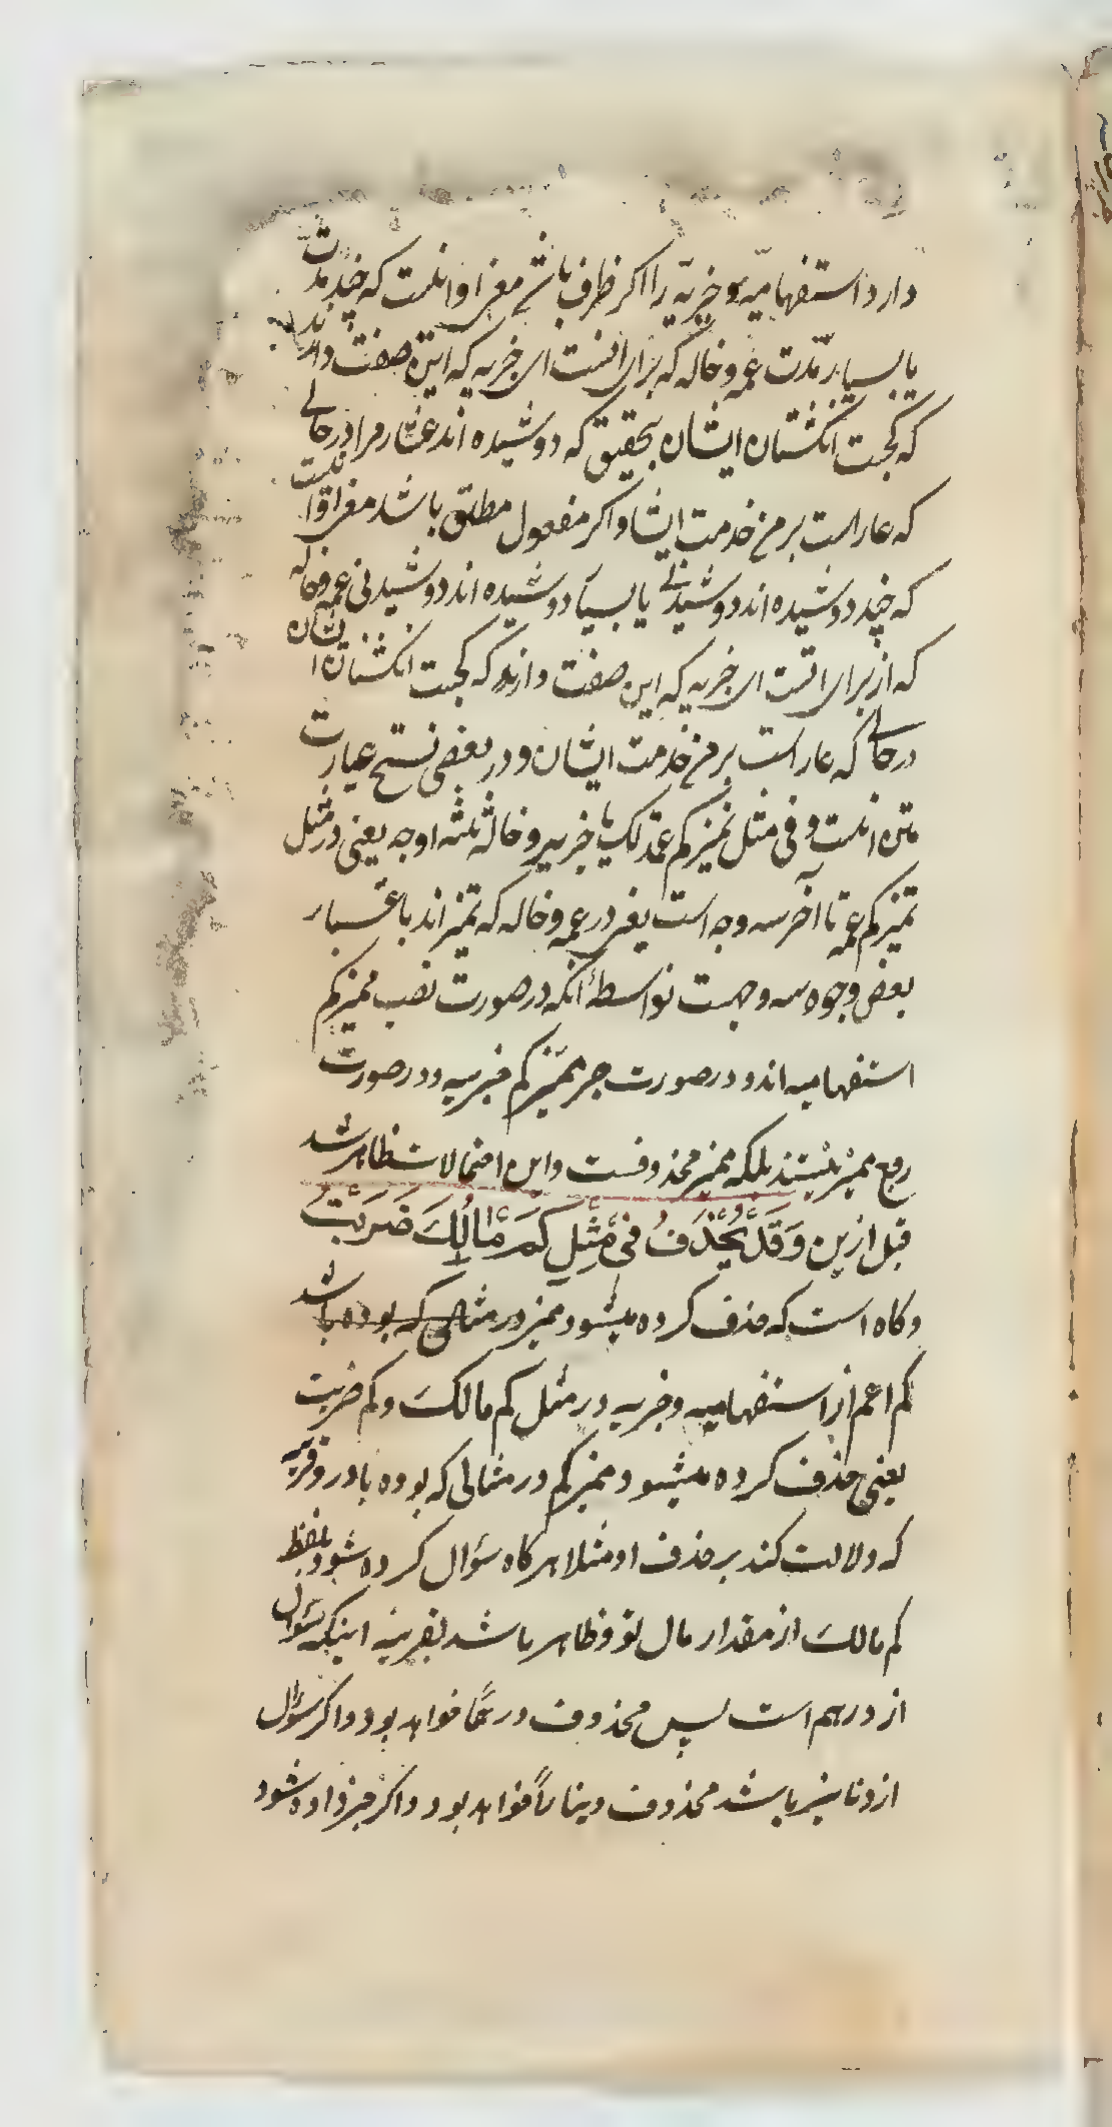 دارد استفهامیّه و خبریّه را اگر ظرف باشد معنی او اینست که چند مدّت
یا بسیار مدّت عمه و خاله که برای تست ای جریر که این صفت دارند
که کجست انگشتان ایشان بتحقیق که دوشیده اند عشار مرا در حالتی
که عار است بر من خدمت ایشان و اگر مفعول مطلق باشد معنی او اینست
که چند دوشیده اند دوشیدنی یا بسیار دوشیده اند دوشیدنی عمه و خاله
که از برای تست ای جریر که این صفت دارند که کجست انگشتان ایشان
در حالتی که عار است بر من خدمت ایشان و در بعضی نسخ عبارت
متن اینست و فی مثل تمیز کم عمة لک یا جریر و خالة ثلثه اوجه یعنی در مثل
تمیز کم عمه تا آخر سه وجه است یعنی در عمه و خاله که تمیز اند باعتبار
بعض وجوه سه وجهست بواسطهٔ آنکه در صورت نصب ممیز کم
استفهامیه اند و در صورت جر ممیّز کم خبریه و در صورت
رفع ممیز نیستند بلکه ممیز محذوفست و این احتمالات ظاهر شد
قبل ازین وَقَدْ یُحْذَفُ فی مِثْلِ کَمْ مالُکَ ضَرَبْتُ
و کاه است که حذف کرده میشود ممیز در مثالی که بوده باشد
کم اعم از استفهامیه و خبریه در مثل کم مالک و کم ضربت
یعنی حذف کرده میشود ممیز کم در مثالی که بوده باد در و قرینه
که دلالت کند بر حذف او مثلا هرکاه سؤال کرده شود بلفظ
کم مالک از مقدار مال تو و ظاهر باشد بقرینه اینکه سؤال
از درهم است پس محذوف درهماً خواهد بود و اکر سؤال
از دنانیر باشد محذوف دیناراً خواهد بود و اکر خبر داده شود